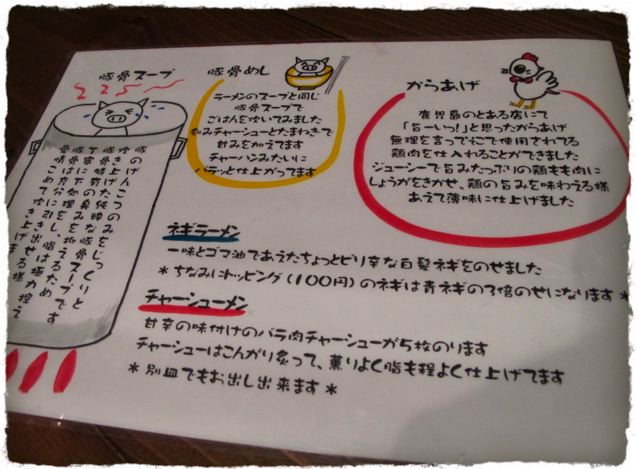 豚骨スープ
豚骨めし
ラーメンのスープと同じ
豚骨スープで
ごはんを炊いてみました
刻みチャーシューとたまねぎで
甘みを加えてます
チャーハンみたいに
パラッと仕上がってます
からあげ
鹿児島のとある店にて
「旨ーいっ!」と思ったからあげ
無理を言ってそこで使用されてる
鶏肉を仕入れることができました
ジューシーで旨みたっぷりの鶏もも肉に
しょうがをきかせ、鶏の旨みを味わえる様
あえて薄味に仕上げました
げんこつのみをじっくりと
純粋な豚骨スープです
ネギラーメン
一味とゴマ油であえたちょっとピリ辛な白髪ネギをのせました
*ちなみにトッピング(100円)のネギは青ネギの3倍のせになります*
チャーシューメン
甘辛の味付けのバラ肉チャーシューが5枚のります
チャーシューはこんがり炙って、薫りよく脂も程よく仕上げてます
*別皿でもお出し出来ます*